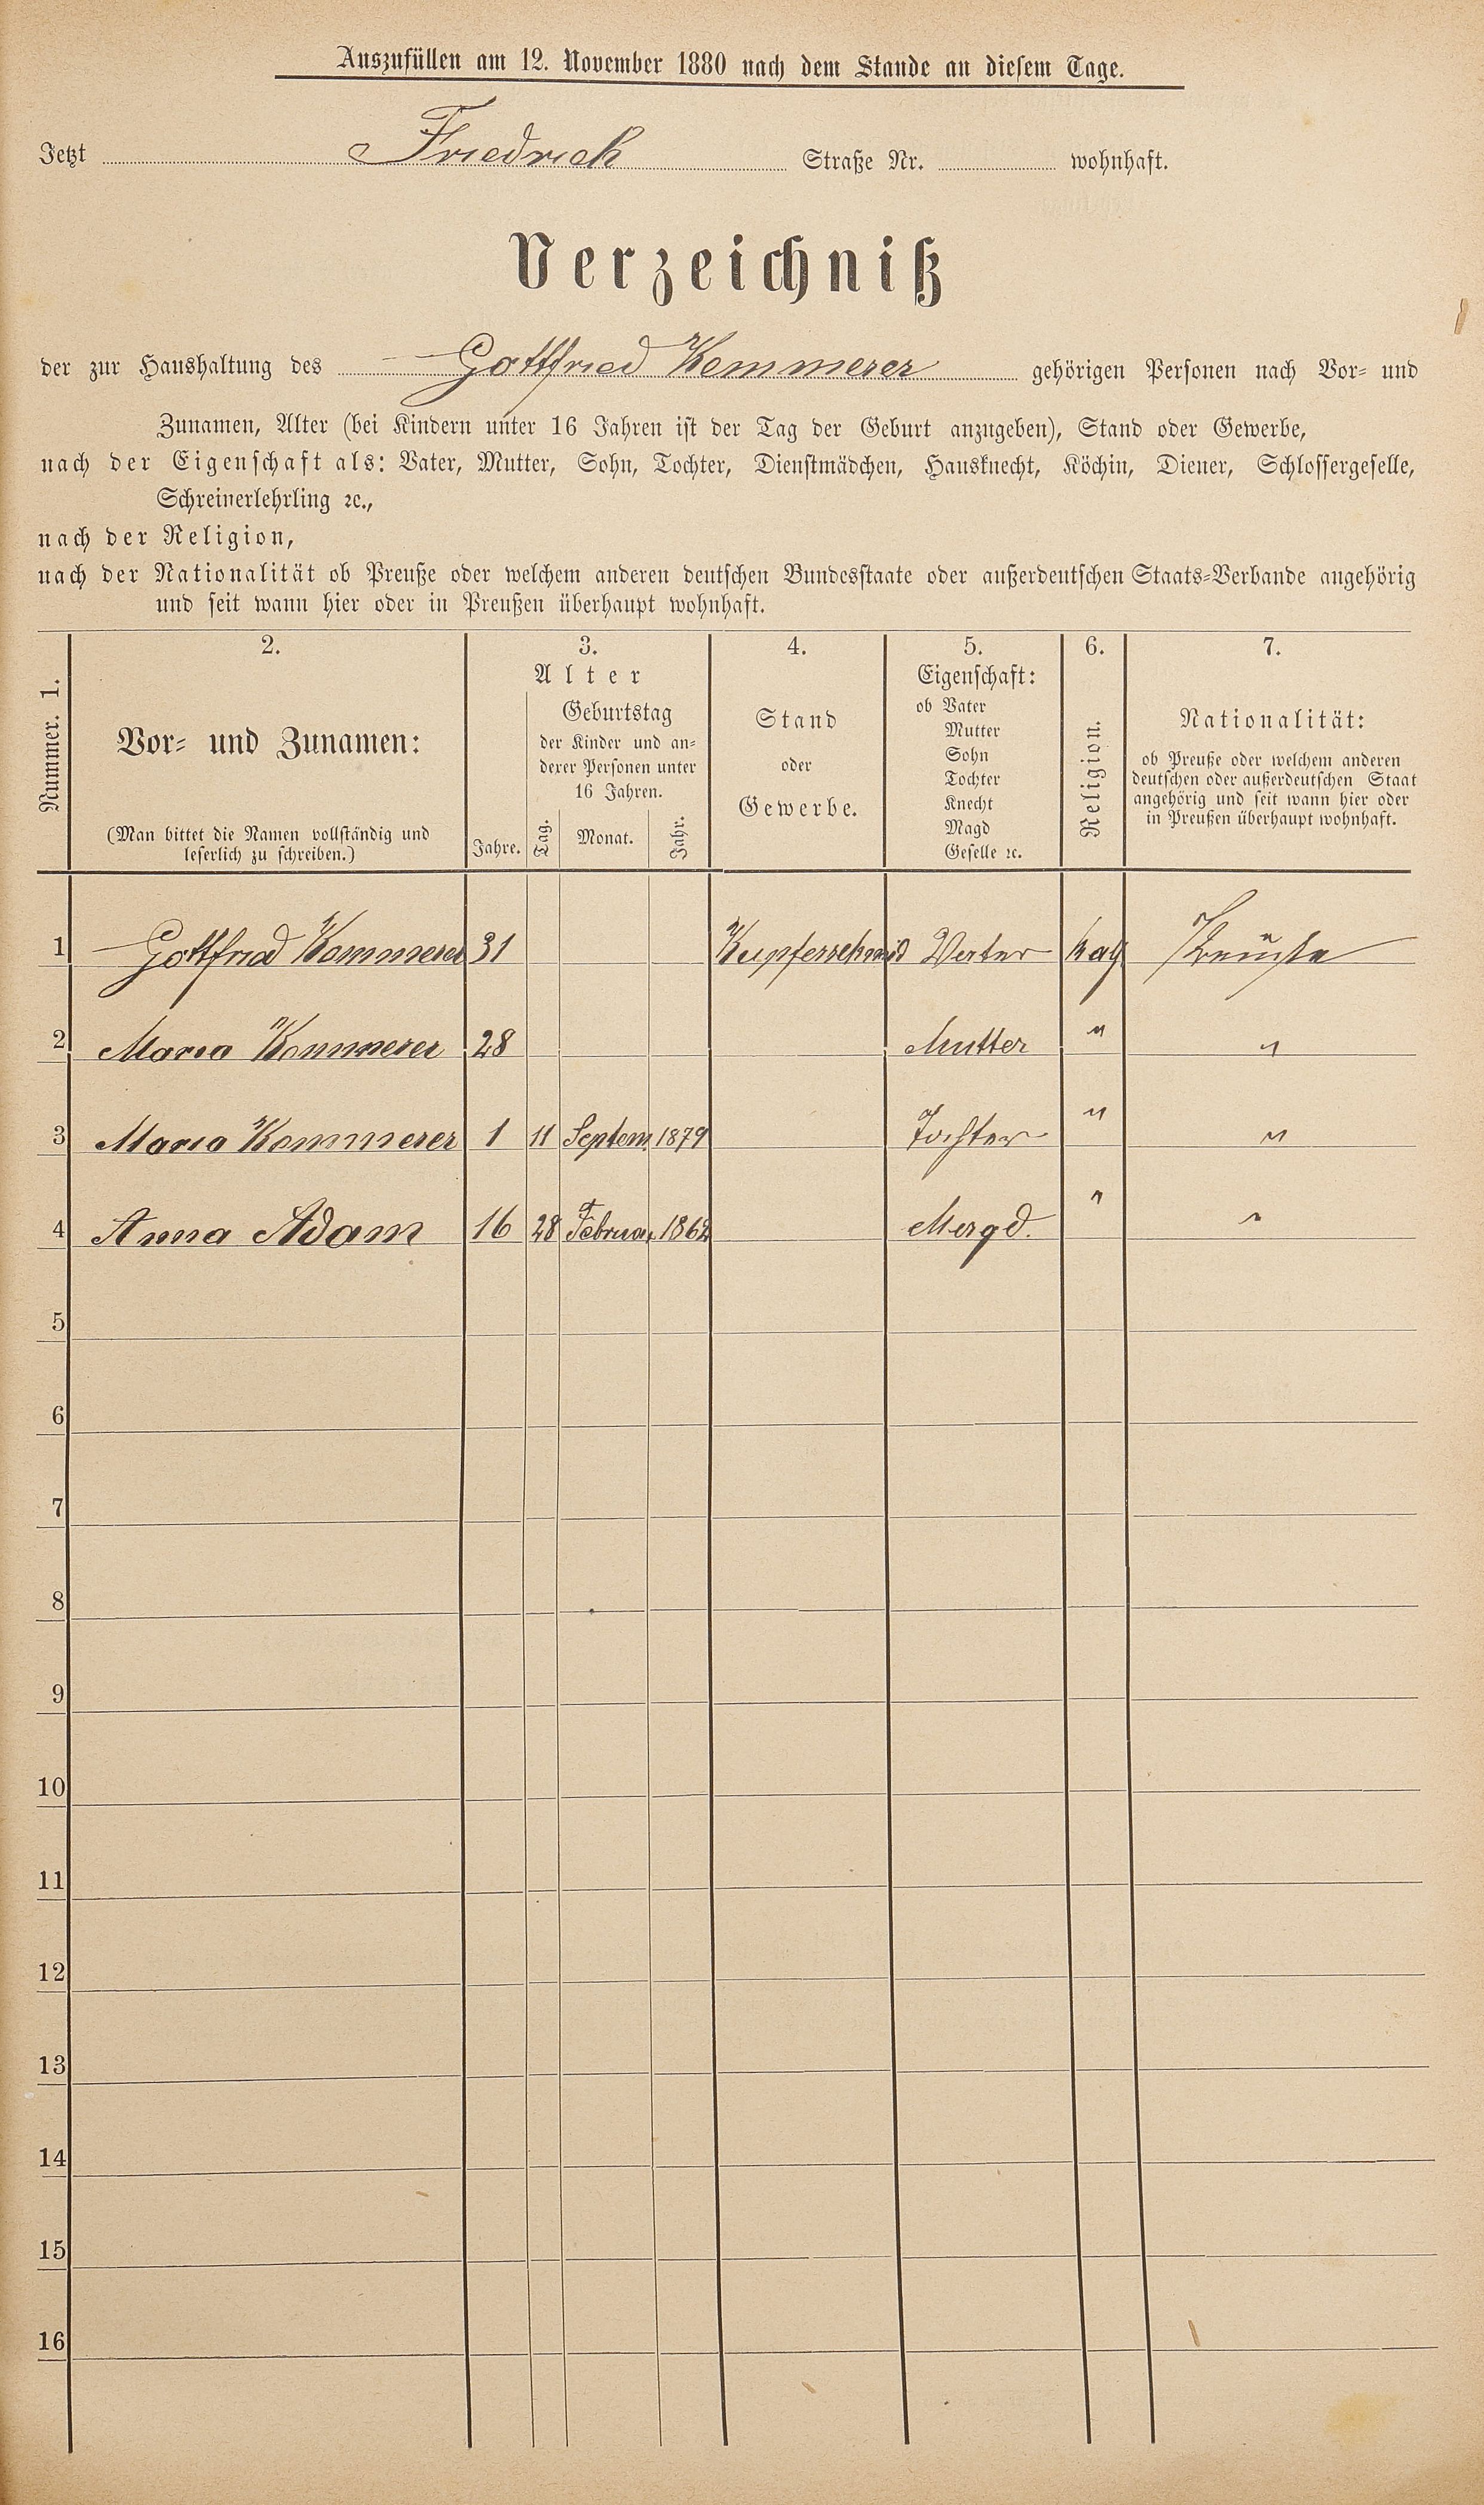 Auszufüllen am 12. November 1880 nach dem Stande an diesem Tage.
Jetzt Friedrich Straße Nr. wohnhaft.
Verzeichniß
der zur Haushaltung des Gottfried Kemmerer gehörigen Personen nach Vor- und
Zunamen, Alter (bei Kindern unter 16 Jahren ist der Tag der Geburt anzugeben), Stand oder Gewerbe,
nach der Eigenschaft als: Vater, Mutter, Sohn, Tochter, Dienstmädchen, Hausknecht, Köchin, Diener, Schlossergeselle,
Schreinerlehrling ꝛc.,
nach der Religion,
nach der Nationalität ob Preuße oder welchem anderen deutschen Bundesstaate oder außerdeutschen Staats-Verbande angehörig
und seit wann hier oder in Preußen überhaupt wohnhaft.
Nummer. 1.
2.
Vor- und Zunamen:
(Man bittet die Namen vollständig und
leserlich zu schreiben.)
3.
Alter
Jahre.
Geburtstag
der Kinder und an-
derer Personen unter
16 Jahren.
Tag. Monat. Jahr.
4.
Stand
oder
Gewerbe.
5.
Eigenschaft:
ob Vater
Mutter
Sohn
Tochter
Knecht
Magd
Geselle ꝛc.
6.
Religion.
7.
Nationalität:
ob Preuße oder welchem anderen
deutschen oder außerdeutschen Staat
angehörig und seit wann hier oder
in Preußen überhaupt wohnhaft.
1 Gottfried Kemmerer 31 Kupferschmid Vater Kath Preuße
2 Maria Kemmerer 28 Mutter " "
3 Maria Kemmerer 1 11 Septem 1879 Tochter " "
4 Anna Adam 16 28 Februar 1862 Mergd. " "
5
6
7
8
9
10
11
12
13
14
15
16